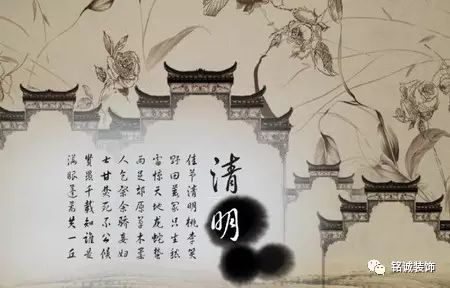 清明
佳节清明桃李笑
野田荒冢只生愁
雷惊天地龙蛇蛰
雨足郊原草木柔
人乞祭余骄妾妇
士甘焚死不公侯
贤愚千载知谁是
满眼蓬蒿共一丘
铭诚装饰